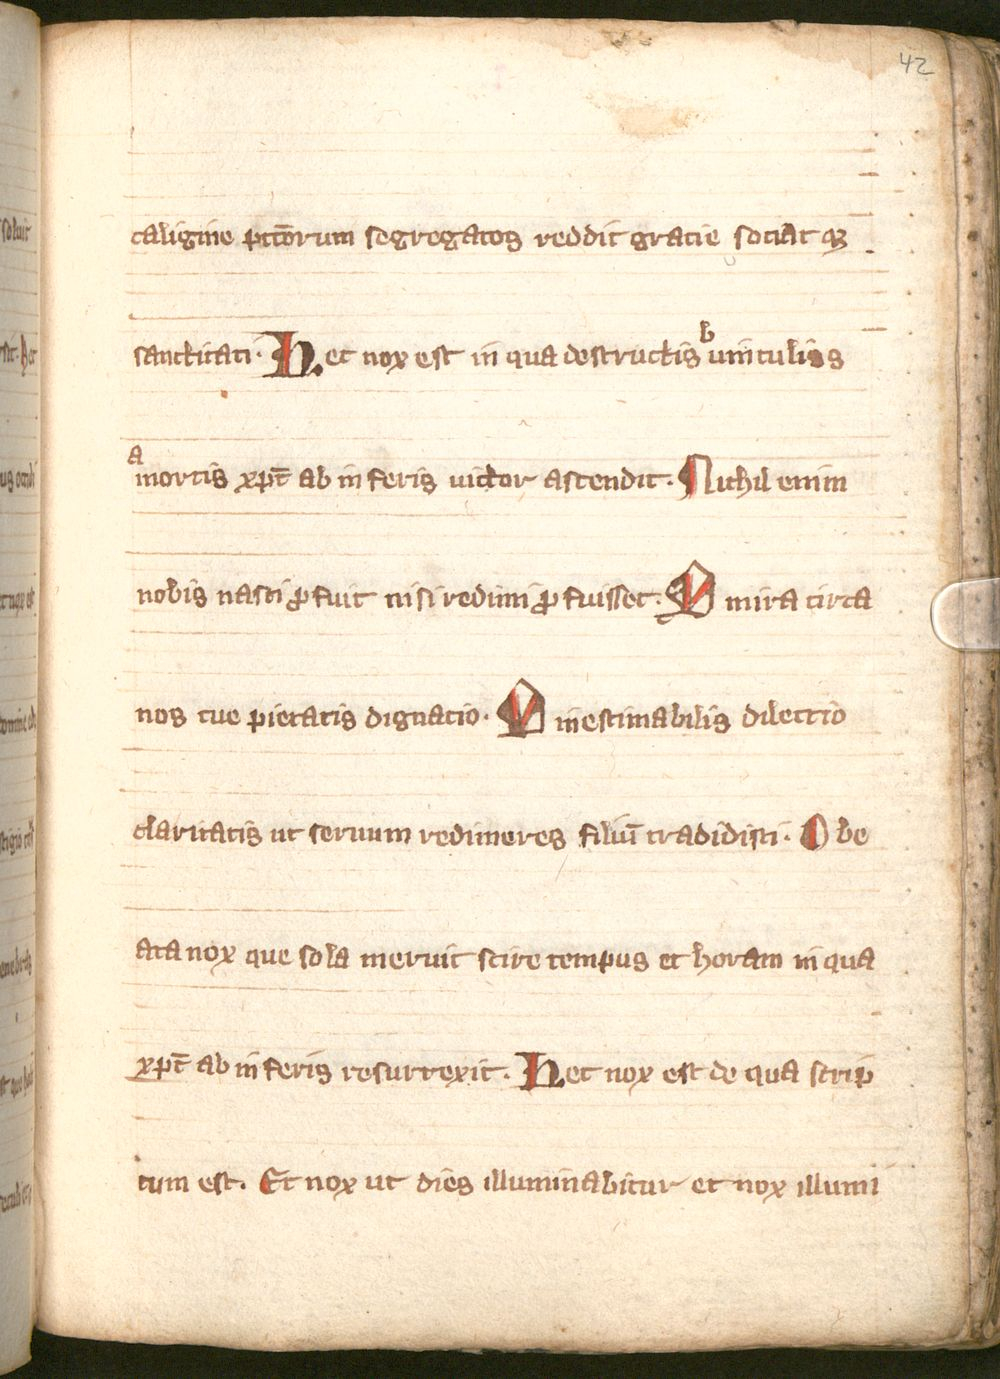 42
caligine pctōrum segregatos reddit gracie sociat qꝫ
sanctitati. Hec nox est in qua destructis b uinculiis
a mortis xpc̄ ab inferis uictor ascendit. Nichil enim
nobis nasci ꝓfuit nisi redimi ꝓfuisset. O mira circa
nos tue pietatis dignacio. O inestimabilis dilectio
claritatis ut seruum redimeres filiū tradidisti. O be
ata nox que sola meruit scire tempus et horam in qua
xpc̄ ab inferis resurrexit. Hec nox est de qua scrip
tum est. Et nox ut dies illuminabitur et nox illumi